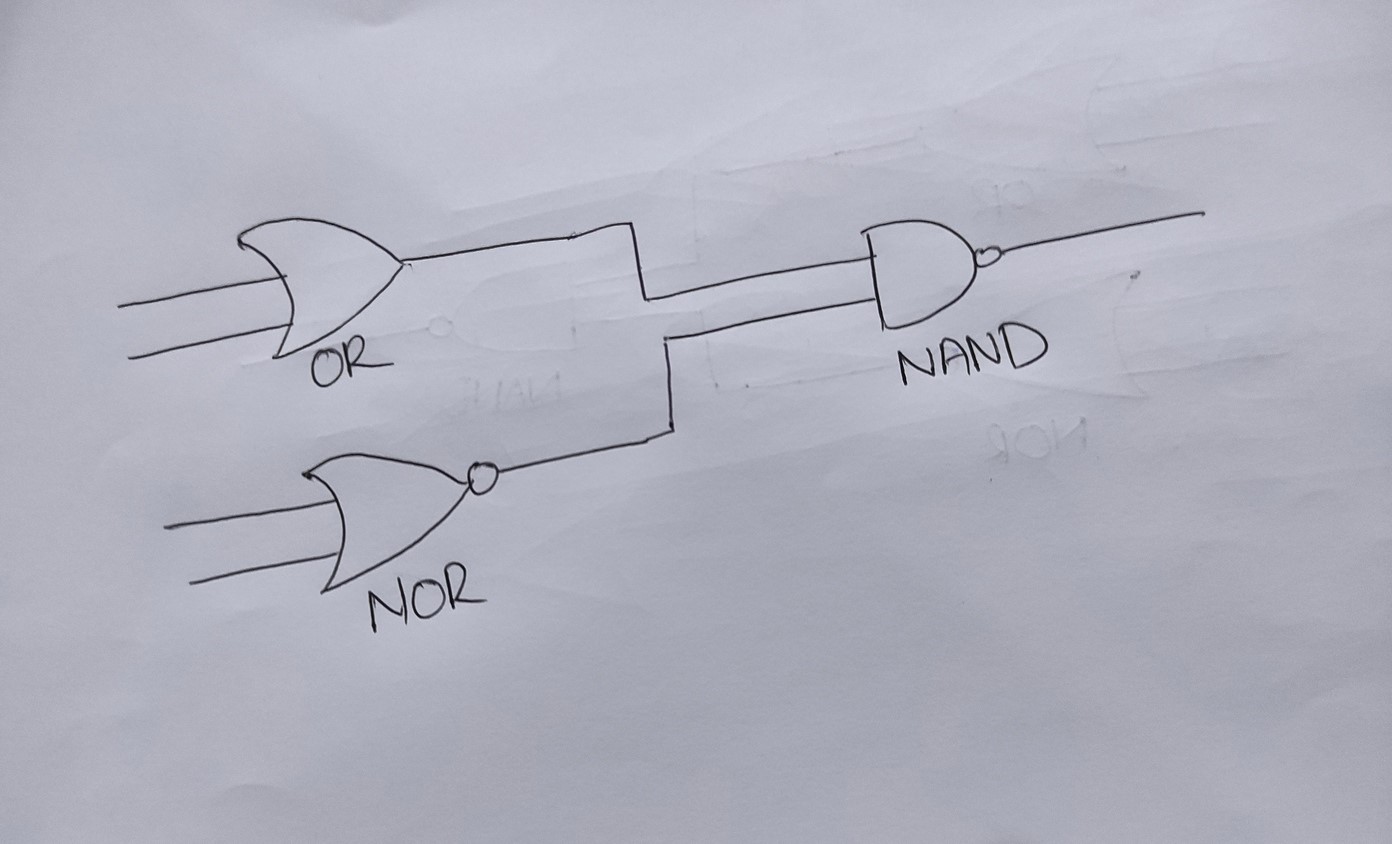 OR
NAND
NOR